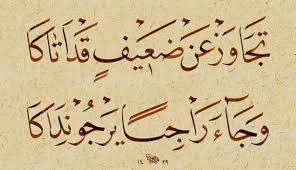 تَجَاوَزْ عَنْ ضَعِيفٍ قَدْ أَتَاكَا
وَجَاءَ رَاجِيًا يَرْجُو نِدَاكَا
١٤٢٩